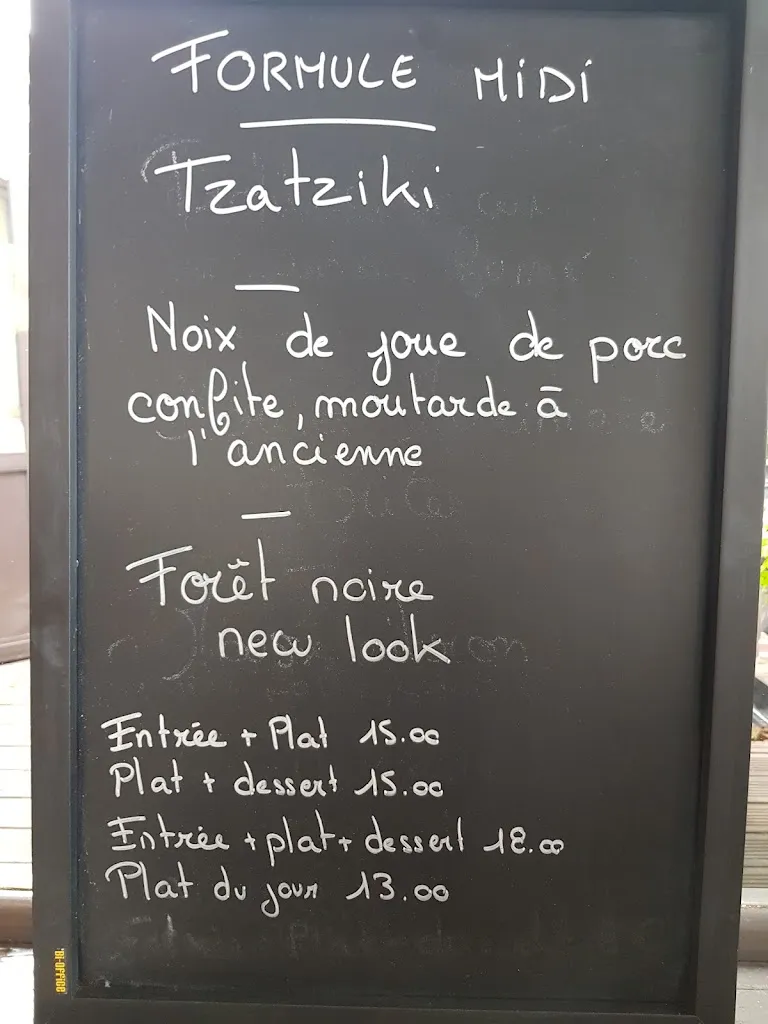 FORMULE MiDi
Tzatziki
Noix de joue de porc
confite, moutarde à
l'ancienne
Forêt noire
new look
Entrée + Plat 15.00
Plat + dessert 15.00
Entrée + plat + dessert 18.00
Plat du jour 13.00
'BI-OFFICE'